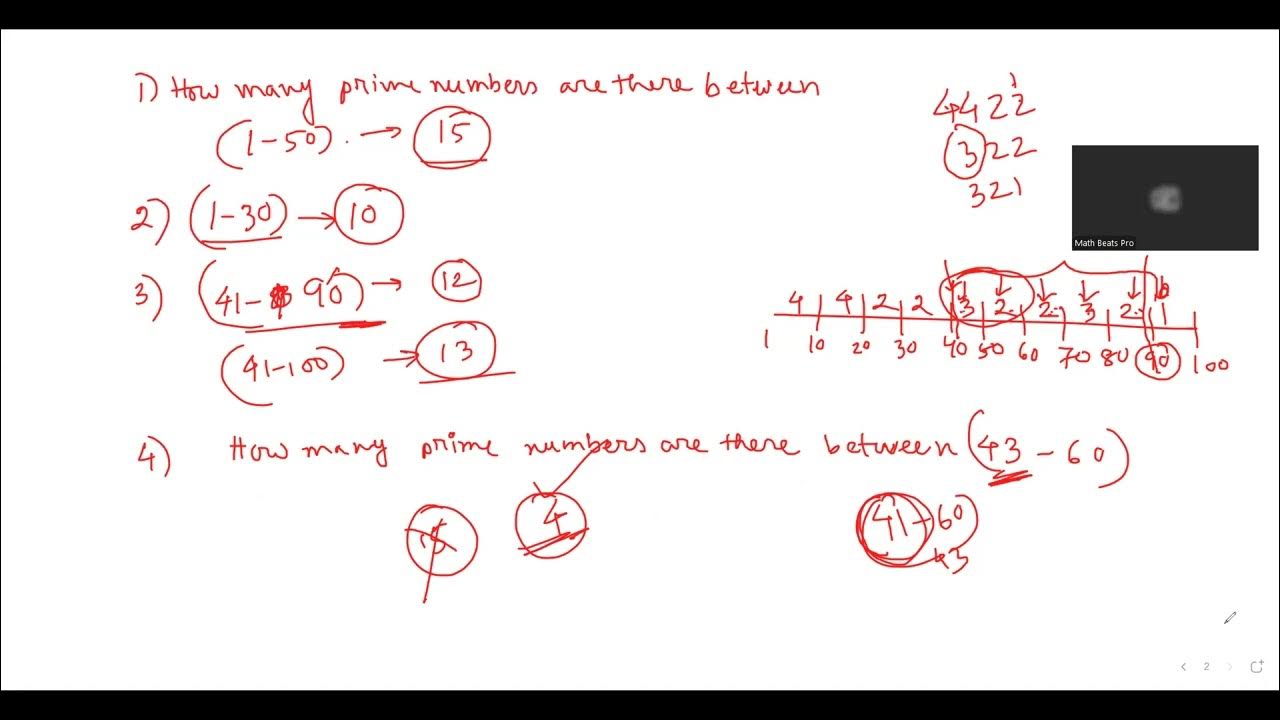 1) How many prime numbers are there between
(1-50). → 15
2) (1-30) → 10
3) (41- 90) → 12
(41-100) → 13
4) How many prime numbers are there between (43 - 60)
4
41-60)
43
4422
322
321
Math Beats Pro
4 4 2 2 3 2 2 3 2 1
1 10 20 30 40 50 60 70 80 90 100
2